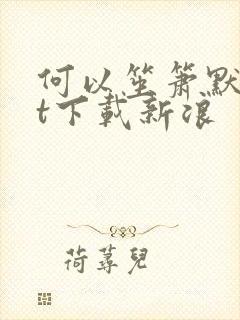 何以笙箫默
t下載新浪
荷蕁兒